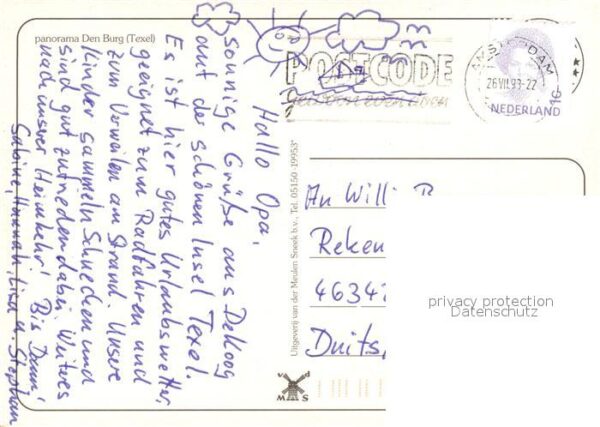 panorama Den Burg (Texel)
Hallo Opa,
sonnige Grüße aus DeKoog
auf der schönen Insel Texel.
Es ist hier gutes Urlaubswetter,
geeignet zum Radfahren und
zum Verweilen am Strand. Unsere
Kinder sammeln Schnecken und
sind gut zufrieden dabei. Weiteres
nach unserer Heimkehr! Bis Dann!
Sabine, Hannah, Lisa u. Stephan
Uitgeverij van der Meulen Sneek b.v., Tel. 05150-19953*
POSTCODE
AMSTERDAM
26VII.93-22
NEDERLAND
An Willi
Reken
4634
Duits,
privacy protection
Datenschutz
v d
M S